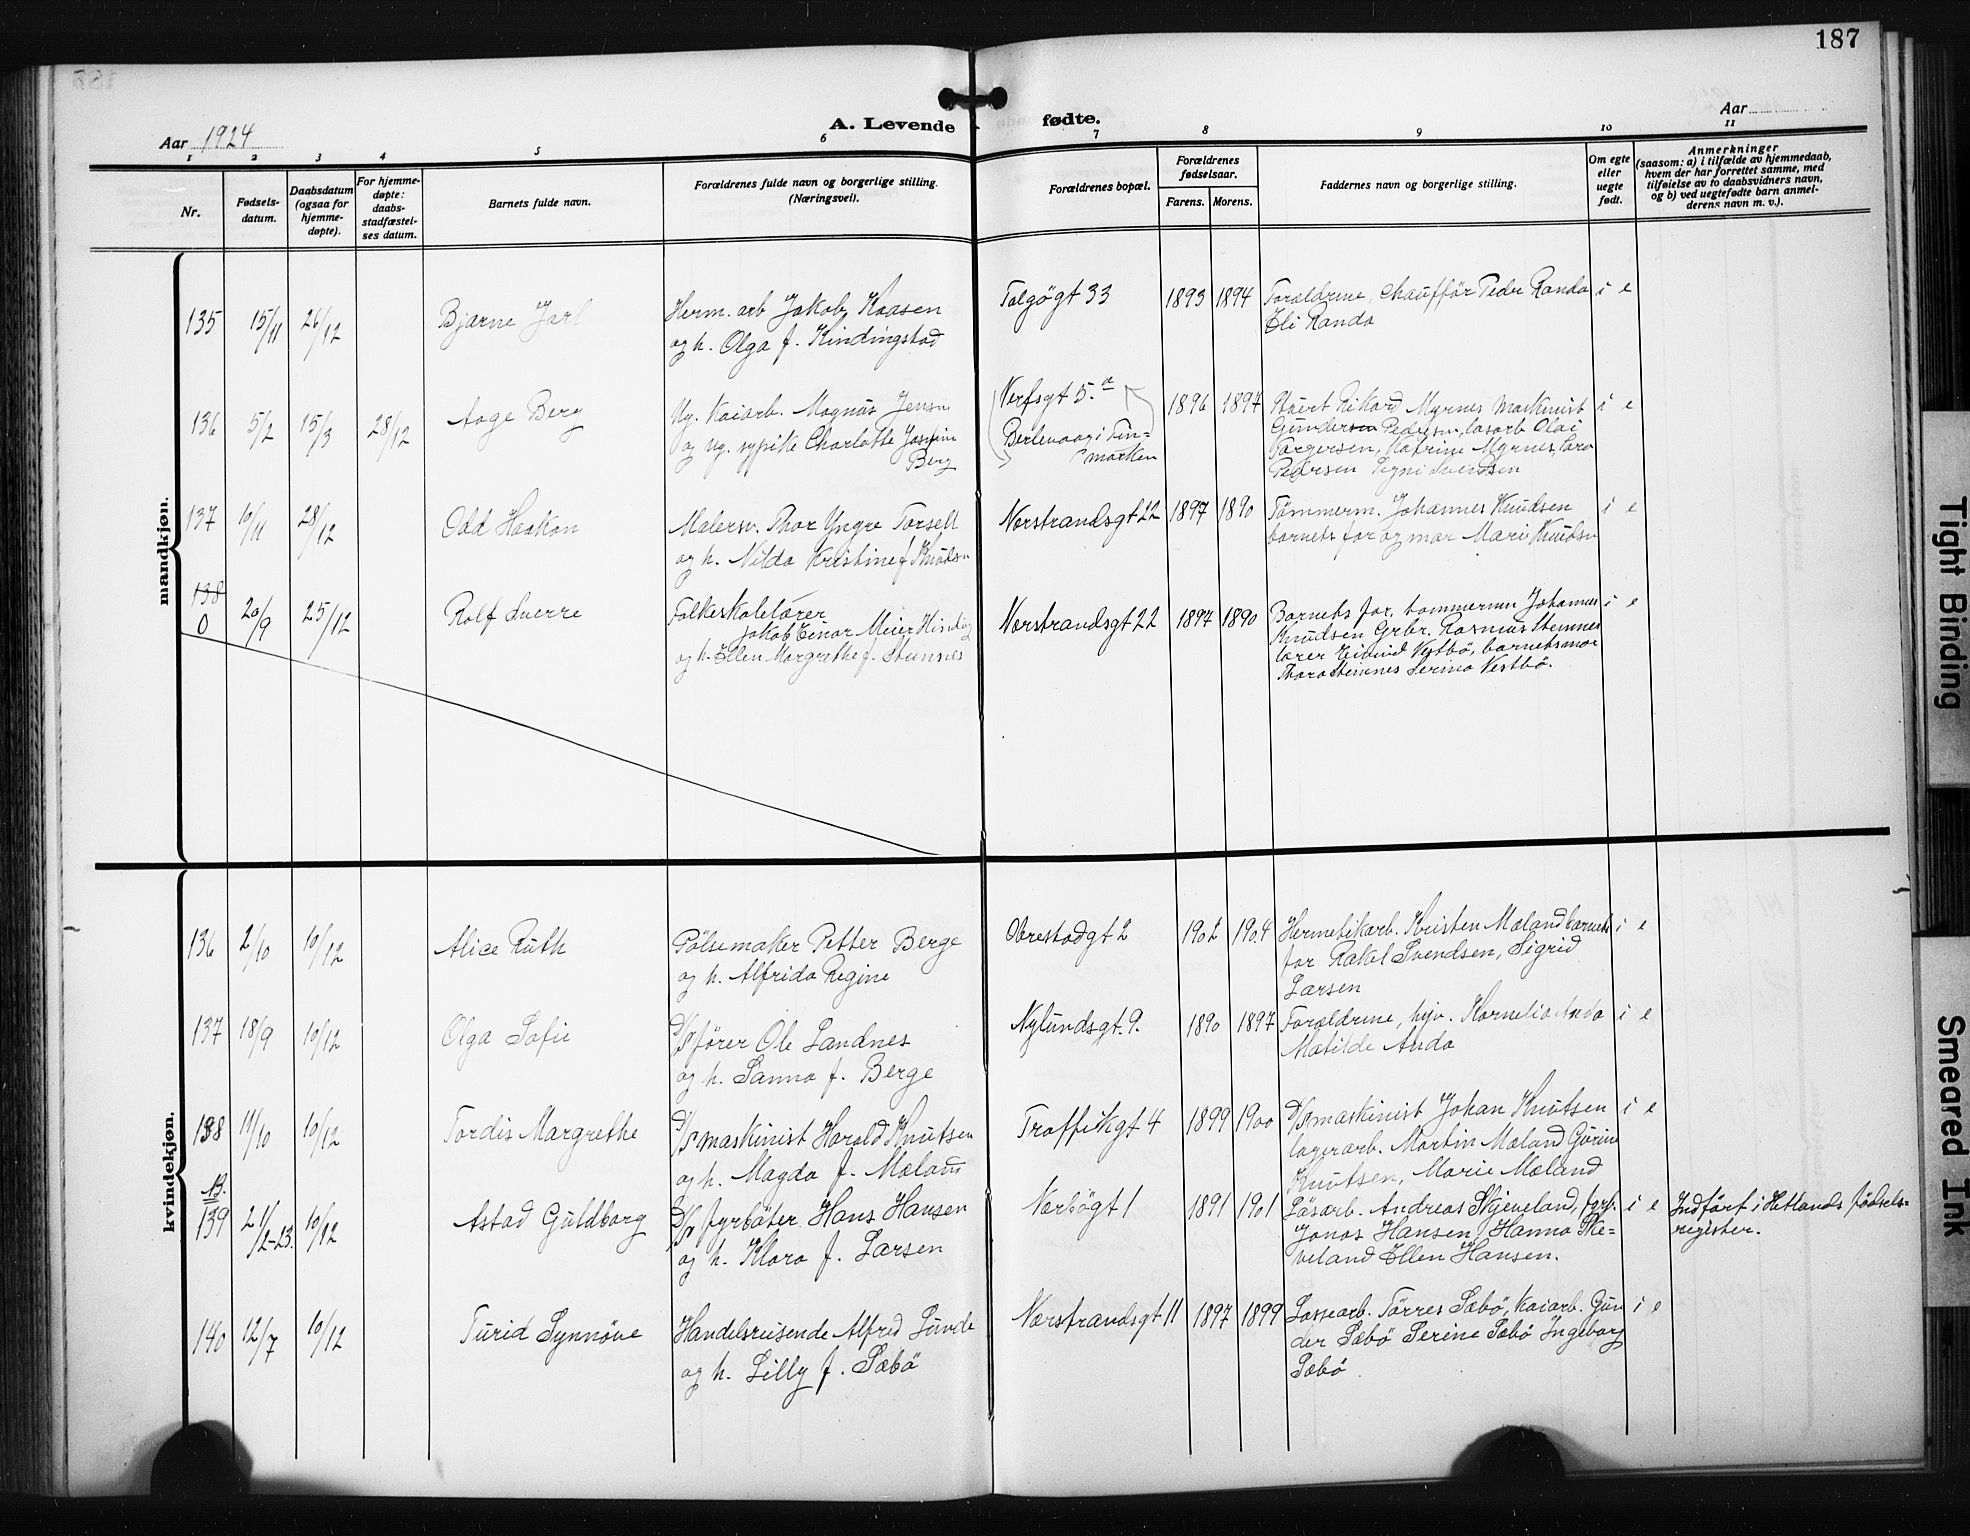 187
Aar 1924
A. Levende fødte.
Aar
1 2 3 4 5 6 7 8 9 10 11
Nr.
Fødsels-
datum.
Daabsdatum
(ogsaa for
hjemme-
døpte).
For hjemme-
døpte:
daabs-
stadfæstel-
ses datum.
Barnets fulde navn.
Forældrenes fulde navn og borgerlige stilling.
(Næringsvei).
Forældrenes bopæl.
Forældrenes
fødselsaar.
Farens. Morens.
Faddernes navn og borgerlige stilling.
Om egte
eller
uegte
født.
Anmerkninger
(saasom: a) i tilfælde av hjemmedaab,
hvem der har forrettet samme, med
tilføielse av to daabsvidners navn,
og b) ved uegtefødte barn anmel-
derens navn m. v.).
mandkjøn.
135 15/11 26/12 Bjarne Jarl
Herm. arb Jakob Kaasen
og h. Olga f. Kindingstad
Tolgøgt 33 1893 1894
Forældrene, Chauffør Peder Randa
Eli Randa
i e
136 5/2 15/3 28/12 Aage Berg
Ug. Kaiarb. Magnus Jensen
og ug. sypike Charlotte Josefine
Berg
Verfsgt 5.a
Berlevaag i Fin-
marken
1896 1897
Rikard Myrnes Maskinist
Gundersen Pedersen, løsarb Olai
Torgersen, Katrine Myrnes, Lara
Pedersen Svendsen
i e
137 10/11 28/12 Odd Haakon
Malersv. Thor Yngre Torsell
og h. Nilda Kristine f Knudsen
Nerstrandsgt 22 1897 1890
Tømmerm. Johannes Knudsen
barnets far og mor Marie Knudsen
i e
138
0 20/9 25/12 Rolf Sverre
Folkeskolelærer
Jakob Einar Meier
og h. Ellen Margrethe f. Stemnes
Nerstrandsgt 22 1897 1890
Barnets far, tømmermn Johannes
Knudsen Grbr. Rasmus Stemnes
lærer Eivind Vestbø, barnets mor
Thora Stemnes Serina Vestbø.
i e
kvindekjøn.
136 2/10 10/12 Alice Ruth
Pølsemaker Petter Berge
og h. Alfrida Regine
Obrestadgt 2 1902 1904
Hermetikarb. Kristen Mæland barnets
far Rakel Svendsen, Sigrid
Larsen
i e
137 18/9 10/12 Olga Sofie
D/S fører Ole Sandnes
og h. Sanna f. Berge
Nylundsgt. 9. 1890 1897
Forældrene, hyv. Kornelia Anda
Matilde Anda
i e
138 11/10 10/12 Tordis Margrethe
D/S maskinist Harald Knutsen
og h. Magda f. Mæland
Traffikgt 4 1899 1900
D/S maskinist Johan Knutsen
lagerarb. Martin Mæland Gurine
Knutsen, Marie Mæland
i e
13.
139 21/2-23. 10/12 Astad Guldborg
D/S fyrbøter Hans Hansen
og h. Klara f. Larsen
Nærbøgt 1 1891 1901
Løsarb. Andreas Skjeveland, fyrb.
Jonas Hansen, Hanna Ske-
veland Ellen Hansen.
i e
Indført i Hetlands fødsels-
register.
140 12/7 10/12 Turid Synnøve
Handelsreisende Alfred Lunde
og h. Lilly f. Sæbø
Nærstrandsgt 11 1897 1899
Lossearb. Tørres Sæbø, Kaiarb. Gun
der Sæbø Serine Sæbø Ingeborg
Sæbø.
i e
Tight Binding
Smeared Ink